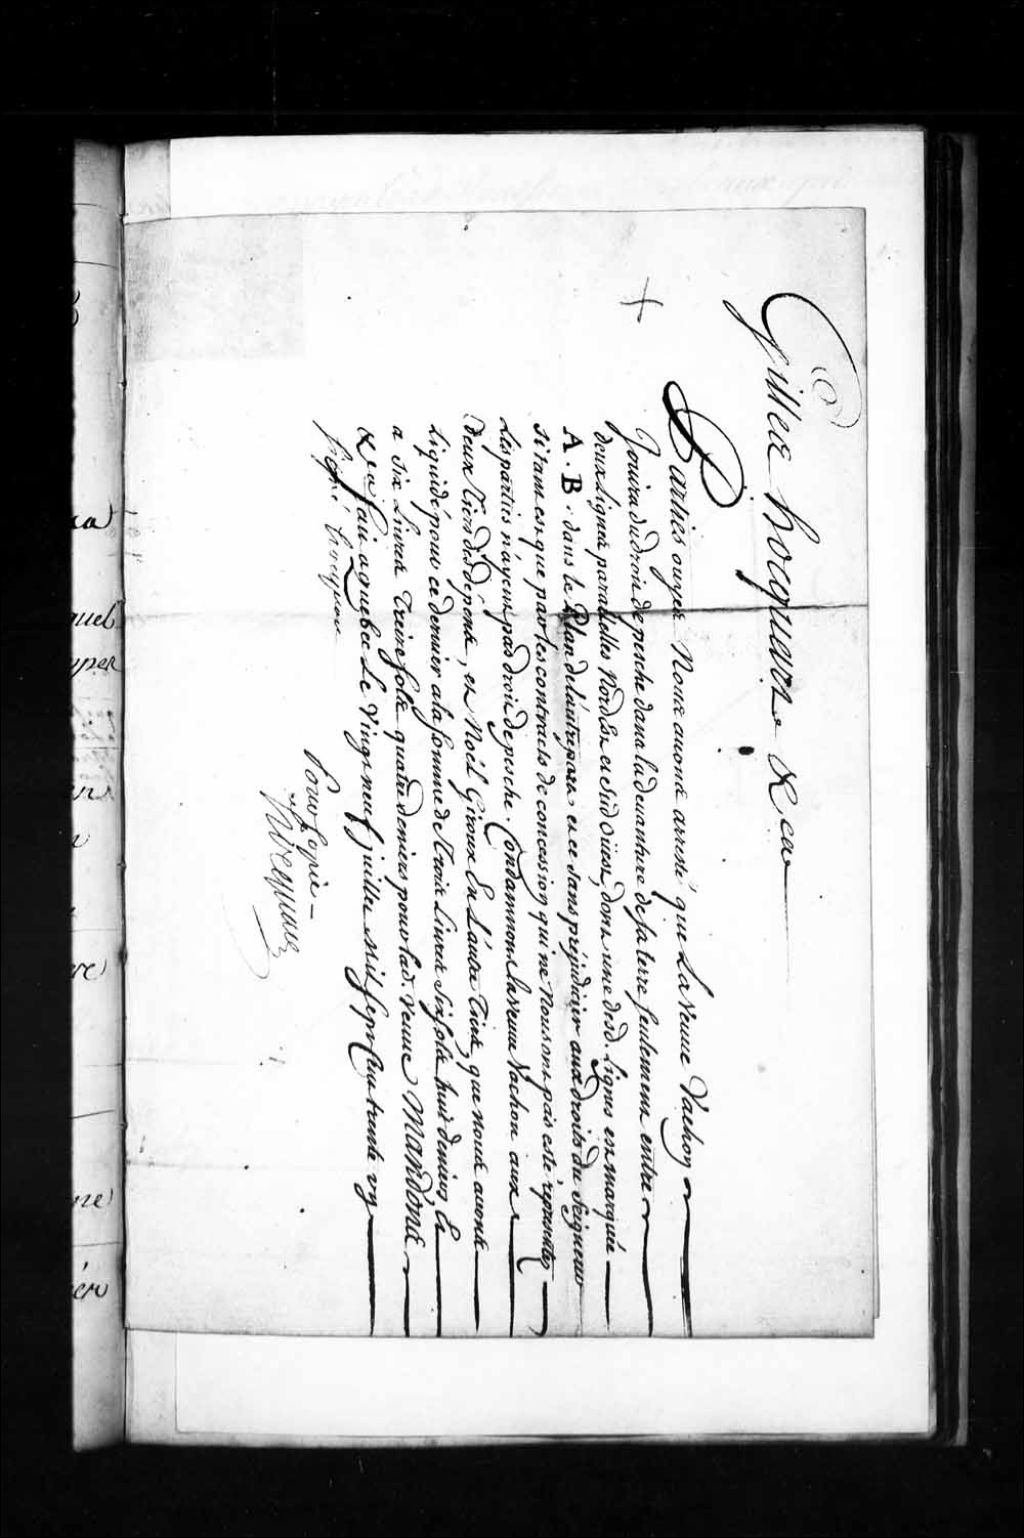 Gilles hocquart &ca
Parties ouyes Nous avons arresté que La veuve Vachon
Jouira du droit de pesche dans la devanture de sa terre seulement entre
deux Lignes paralelles Nord Est et Sud Oüest, dont une desd. Lignes est marquée
A. B. dans le Plan de l'autre part et ce sans préjudicier aux droits du Seigneur
si tant est que par les contracts de concession qui ne Nous ont pas esté représentez
Les parties n'ayent pas droit de pesche. Condamnons la veuve Vachon aux
deux tiers des dépens, et Noël Giroux En L'autre Tiers, que nous avons
Liquidé pour ce dernier a la somme de trois Livres six sols huit deniers Et
a six Livres Treize sols quatre deniers pour lad. veuve Mandons
&ca fait a quebec Le vingt neuf juillet mil sept Cent trente un
signé hocquart
Pour Copie
Hocquart
ca
quel
yper
re
ne